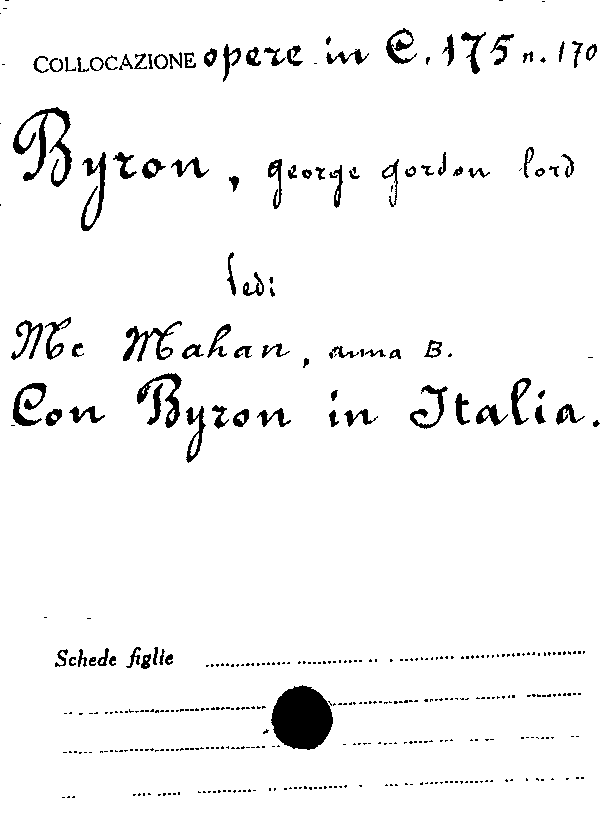 COLLOCAZIONE opere in C. 175 n. 170
Byron, george gordon lord
Vedi:
Mc Mahan, anna B.
Con Byron in Italia.
Schede figlie